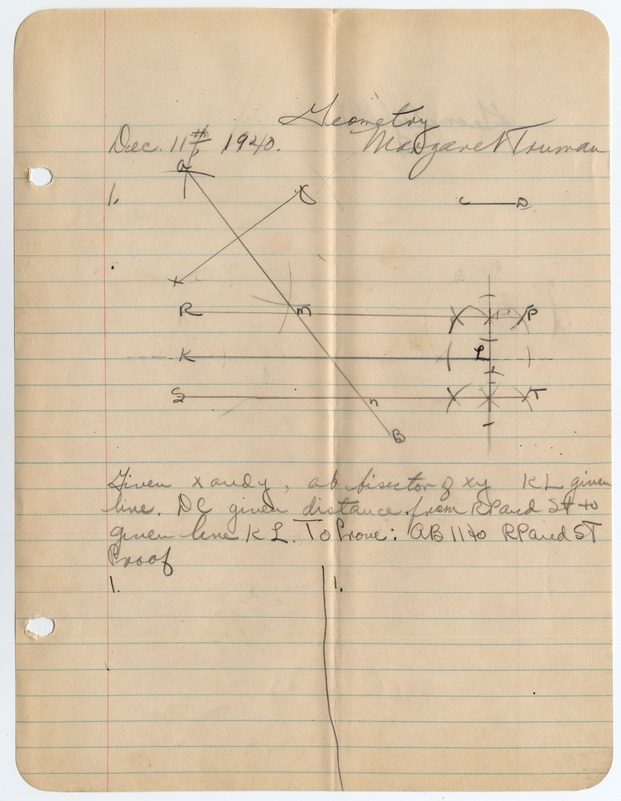 Geometry
Dec. 11th 1940. Margaret Truman
1.
a
y
C D
x
R m P
K L
S n T
B
Given x and y, ab bisector of xy KL given
line. DC given distance from RP and ST to
given line KL. To Prove: AB || to RP and ST
Proof
1. 1.